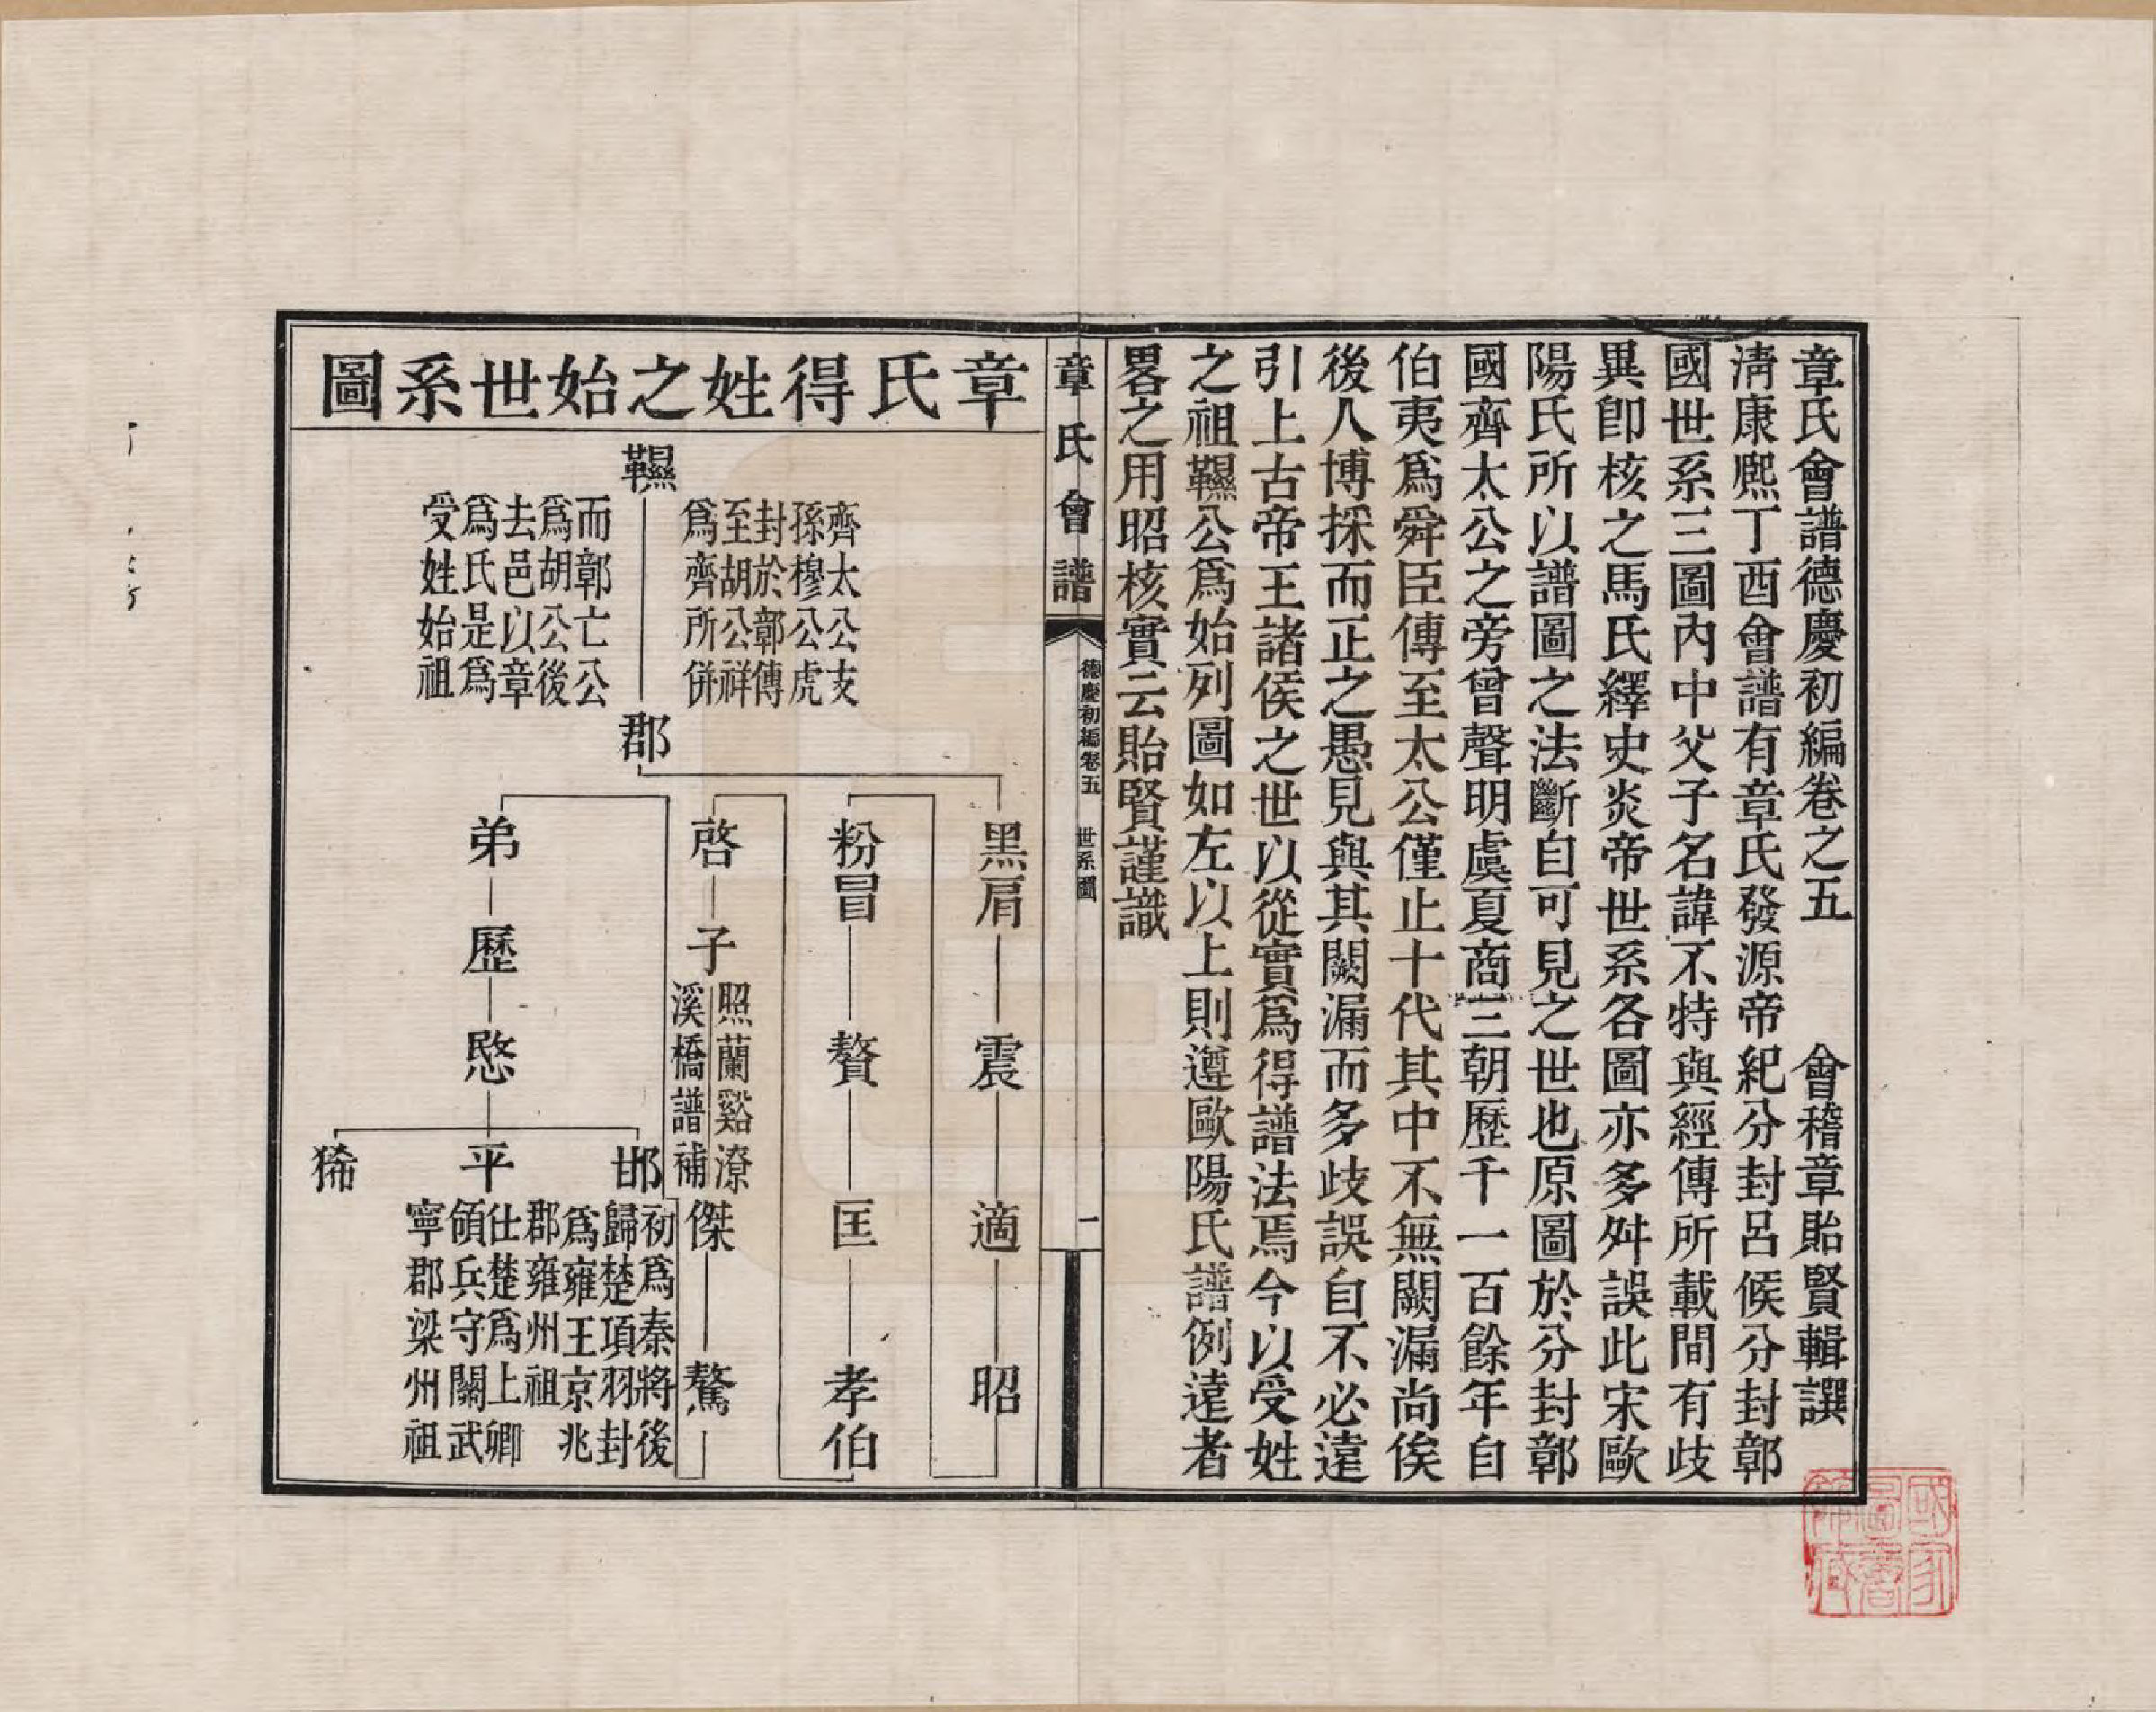 章氏會譜德慶初編卷之五　　會稽章貽賢輯譔
淸康熈丁酉會譜有章氏發源帝紀分封呂侯分封鄣
國世系三圖內中父子名諱不特與經傳所載間有歧
異卽核之馬氏繹史炎帝世系各圖亦多舛誤此宋歐
陽氏所以譜圖之法斷自可見之世也原圖於分封鄣
國齊太公之旁曾聲明虞夏商三朝歷千一百餘年自
伯夷爲舜臣傳至太公僅止十代其中不無闕漏尚俟
後人博採而正之愚見與其闕漏而多歧誤自不必遠
引上古帝王諸侯之世以從實爲得譜法焉今以受姓
之祖韅公爲始列圖如左以上則遵歐陽氏譜例遠者
畧之用昭核實云貽賢謹識
章氏會譜
德慶初編卷五　世系圖
一
章氏得姓之始世系圖
韅
齊太公支
孫穆公虎
封於鄣傳
至胡公祥
爲齊所併
而鄣亡公
爲胡公後
去邑以章
爲氏是爲
受姓始祖
郡
黑肩
震
適
昭
粉冒
贅
匡
孝伯
啓
子
照蘭谿潦
溪橋譜補
傑
驁
弟
歷
愍
邯
初爲秦將後
歸楚項羽封
爲雍王京兆
郡雍州祖
平
仕楚爲上卿
領兵守關武
寧郡梁州祖
豨
國家
圖書
館藏